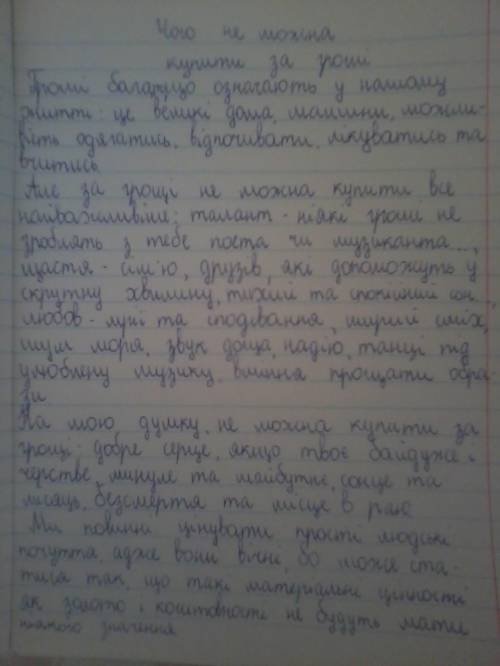 Чого не можна
купити за гроші
Гроші багацько означають у нашому
житті: це великі дома, машини, можли-
вість одягатись, відпочивати, лікуватись та
вчитись.
Але за гроші не можна купити все
найважливіше: талант - ніякі гроши не
зроблять з тебе поета чи музиканта...,
щастя - сім'ю, друзів, які допоможуть у
скрутну хвилину, тихий та спокійний сон...,
любов - мрії та сподівання, щирий сміх,
шум моря, звук доща, надію, танці під
улюблену музику, вміння прощати обра-
зи.
На мою думку, не можна купити за
гроші: добре серце, якщо твоє байдуже і
черстве, минуле та майбутнє, сонце та
місяць, безсмертя та місце в раю.
Ми повинні цінувати прості людські
почуття, адже вони вічні, бо може ста-
тися так, що такі матеріальні цінності
як золото і коштовності не будуть мати
ніякого значення